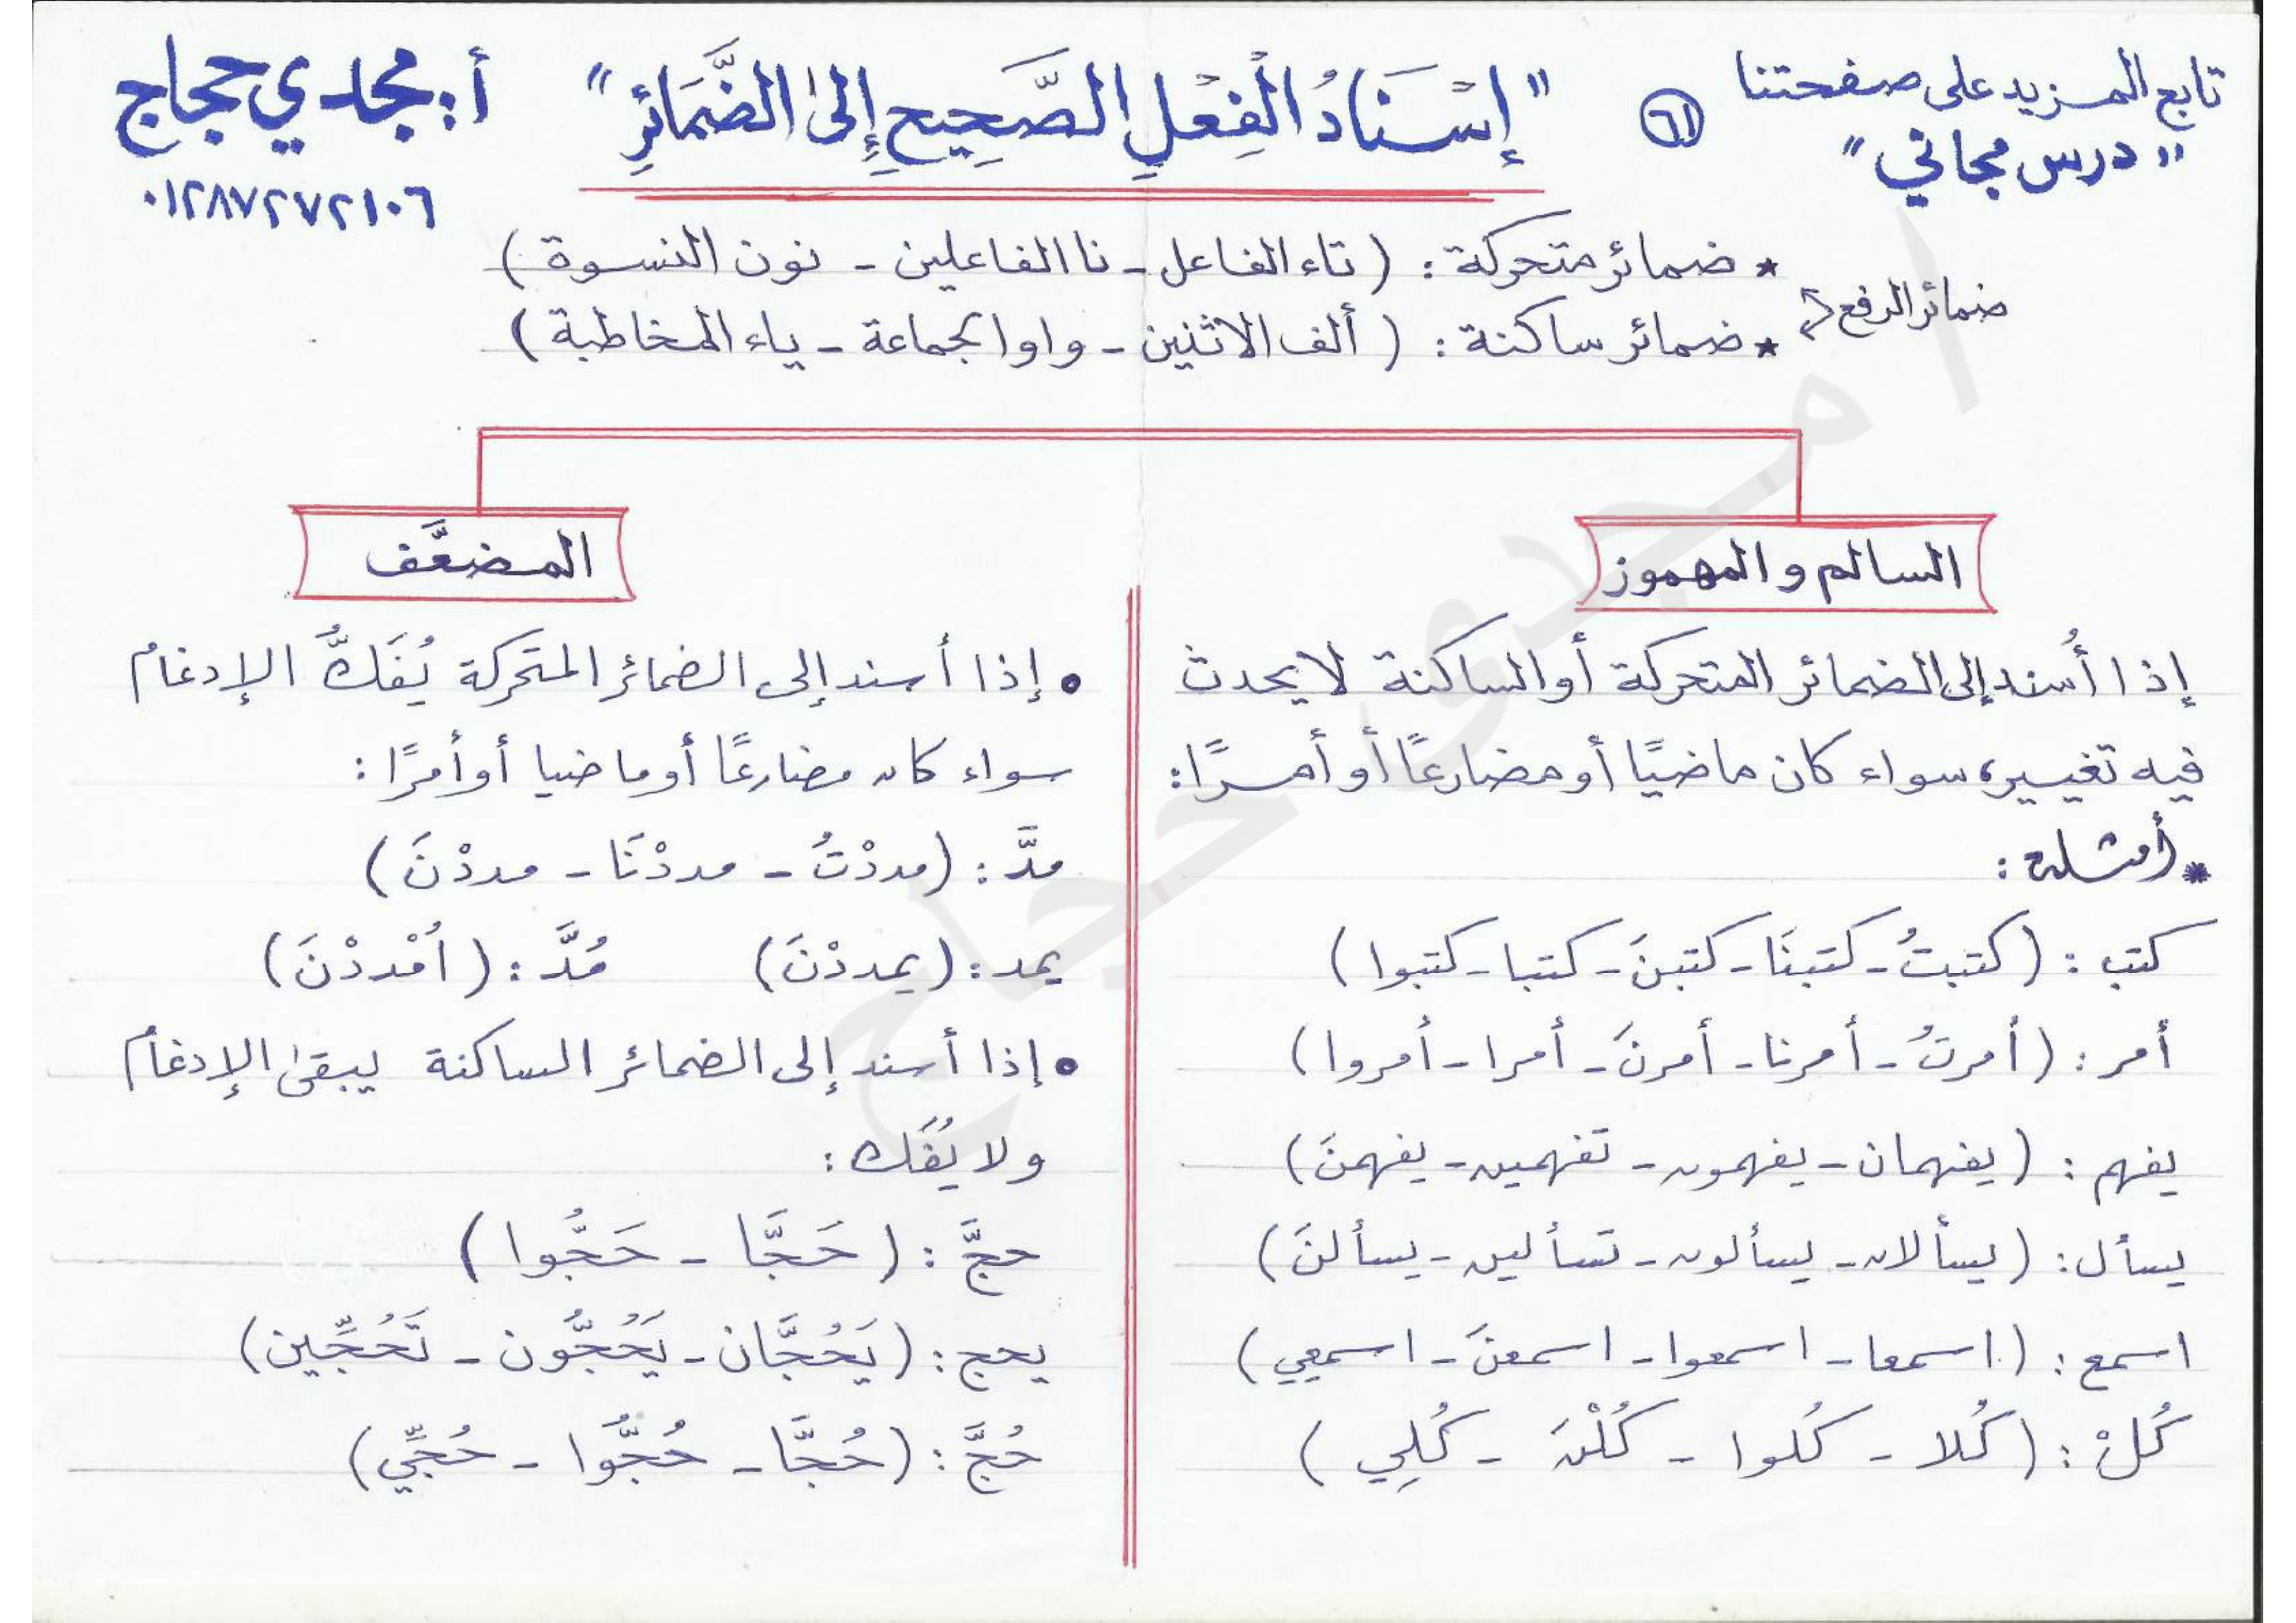 تابع المزيد على صفحتنا
"درس مجاني"
٦١
"إِسْنَادُ الْفِعْلِ الصَّحِيحِ إِلى الضَّمَائِرِ"
أ: مجدي حجاج
٠١٢٨٧٢٧٢١٠٦
ضمائر الرفع
* ضمائر متحركة: (تاء الفاعل - نا الفاعلين - نون النسوة)
* ضمائر ساكنة: (ألف الاثنين - واو الجماعة - ياء المخاطبة)
السالم والمهموز
إذا أُسند إلى الضمائر المتحركة أو الساكنة لا يحدث
فيه تغيير، سواء كان ماضيًا أو مضارعًا أو أمرًا:
* أمثلة:
كتب: (كتبتُ - كتبنَا - كتبنَ - كتبا - كتبوا)
أمر: (أمرتُ - أمرنا - أمرنَ - أمرا - أمروا)
يفهم: (يفهمان - يفهمون - تفهمين - يفهمنَ)
يسأل: (يسألان - يسألون - تسألين - يسألنَ)
اسمع: (اسمعا - اسمعوا - اسمعنَ - اسمعي)
كُلْ: (كُلا - كُلوا - كُلْنَ - كُلِي)
المضعَّف
• إذا أسند إلى الضمائر المتحركة يُفَكُّ الإدغام
سواء كان مضارعًا أو ماضيا أو أمرًا:
مدَّ: (مددْتُ - مددْنَا - مددْنَ)
يمد: (يمددْنَ) مُدَّ: (اُمْددْنَ)
• إذا أسند إلى الضمائر الساكنة يبقى الإدغام
ولا يُفَك:
حجَّ: (حَجَّا - حَجُّوا)
يحج: (يَحُجَّان - يَحُجُّون - تَحُجِّين)
حُجَّ: (حُجَّا - حُجُّوا - حُجِّي)
أ/ مجدى حجاج